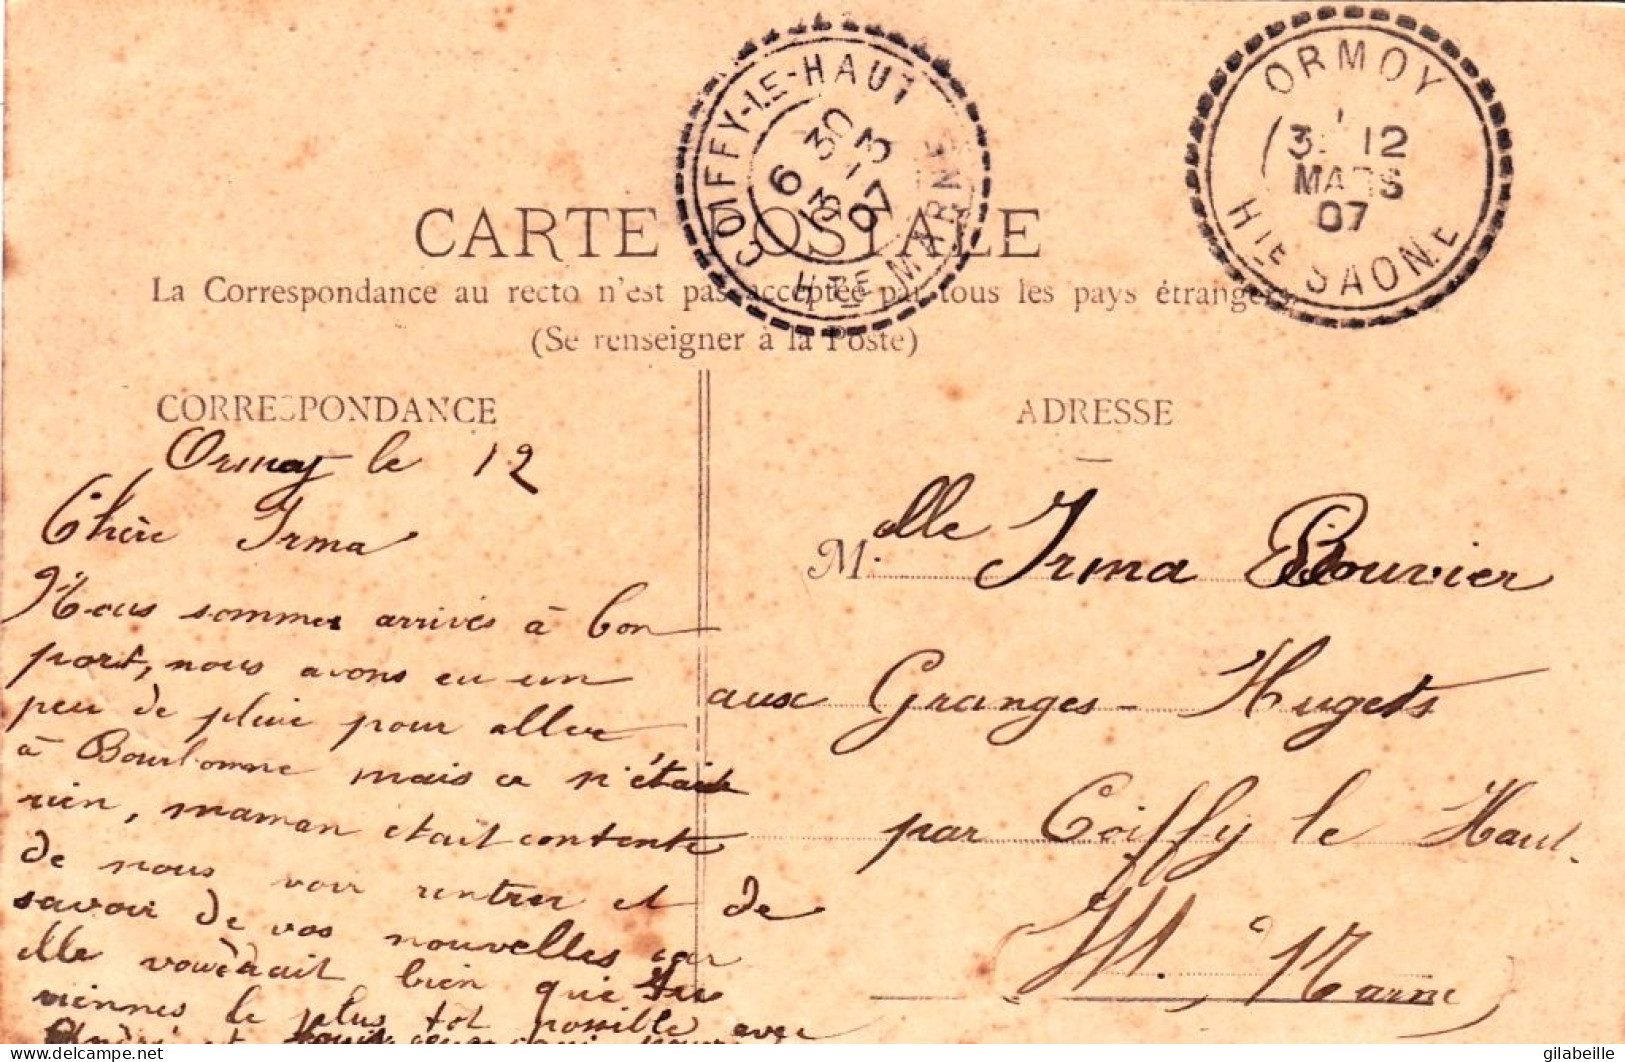 COIFFY-LE-HAUT
6 30
13-3
07
Hte MARNE
ORMOY
3 12
MARS
07
HIE SAONE
CARTE POSTALE
La Correspondance au recto n'est pas acceptée par tous les pays étrangers.
(Se renseigner à la Poste)
CORRESPONDANCE
Ormoy le 12
Chère Irma
Nous sommes arrivés à bon
port, nous avons eu un
peu de pluie pour aller
à Bourbonne mais ce n'était
rien, maman était contente
de nous voir rentrer et de
savoir de vos nouvelles car
elle voudrait bien que tu
viennes le plus tot possible avec
et
ADRESSE
M.elle Irma Bouvier
aux Granges-Hugets
par Coiffy le Haut.
(Ht. Marne)
gilabeille